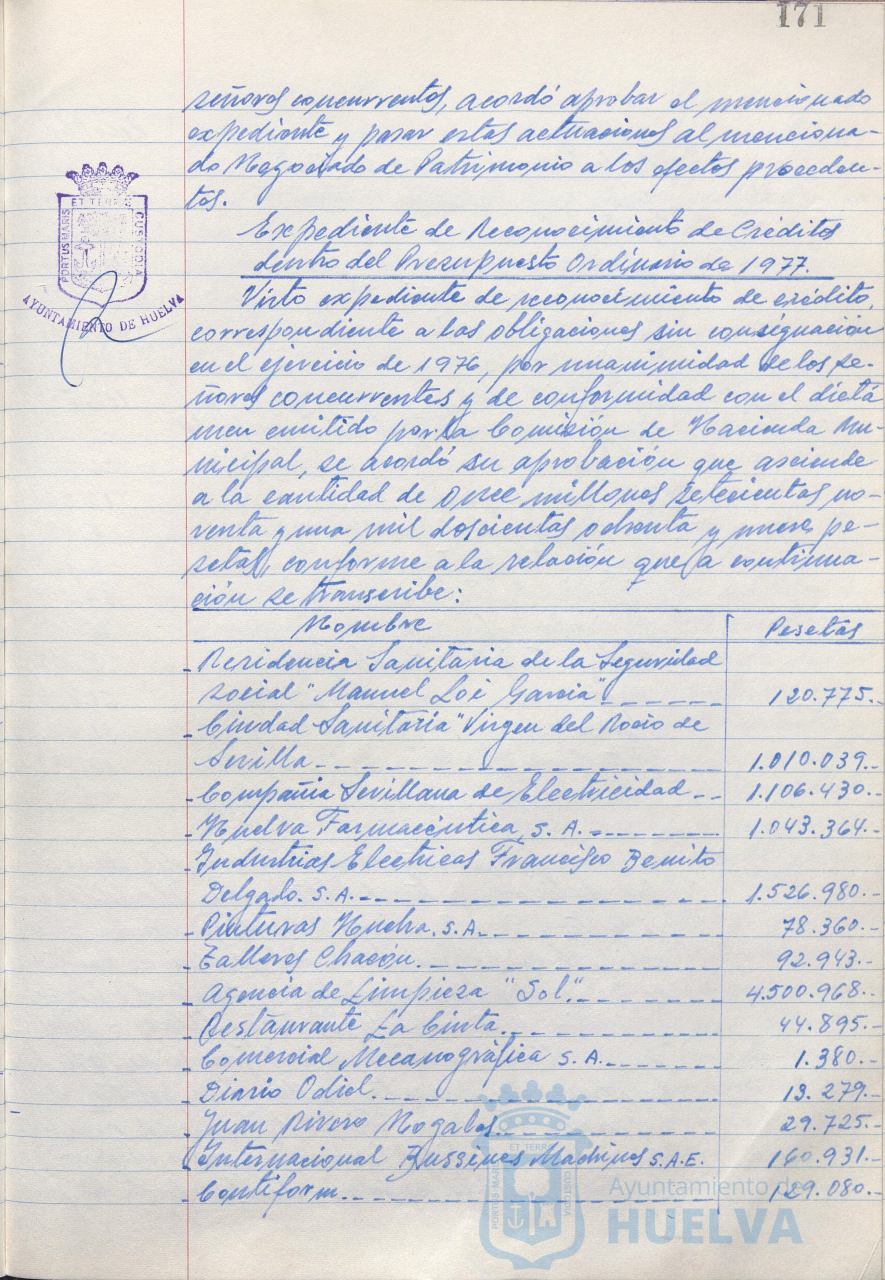 171
señores concurrentes, acordó aprobar el mencionado
expediente y pasar estas actuaciones al menciona-
do Negociado de Patrimonio a los efectos proceden-
tes.
Expediente de Reconocimiento de Créditos
dentro del Presupuesto Ordinario de 1977.
Visto expediente de reconocimiento de crédito,
correspondiente a las obligaciones sin consignación
en el ejercicio de 1976, por unanimidad de los se-
ñores concurrentes y de conformidad con el dictá
men emitido por la Comisión de Hacienda Mu-
nicipal, se acordó su aprobación que asciende
a la cantidad de once millones setecientas no-
venta y una mil doscientas ochenta y nueve pe-
setas, conforme a la relación que a continua-
ción se transcribe:
Nombre Pesetas
- Residencia Sanitaria de la Seguridad
Social "Manuel Loi García" 120.775.-
- Ciudad Sanitaria "Virgen del Rocio de
Sevilla 1.010.039.-
- Compañia Sevillana de Electricidad 1.106.430.-
- Huelva Farmacéutica, S.A. 1.043.364.-
- Industrias Electricas Francisco Benito
Delgado. S.A. 1.526.980.-
- Pinturas Huelva. S.A. 78.360.-
- Talleres Chacón 92.943.-
- Agencia de Limpieza "Sol" 4.500.968.-
- Restaurante La Cinta 44.895.-
- Comercial Mecanográfica S.A. 1.380.-
- Diario Odiel 13.279.-
- Juan Rivero Nogales 29.725.-
- Internacional Bussines Machines S.A.E. 160.931.-
- Contiform 129.080.-
PORTUS MARIS ET TERRE CUSTODIA
AYUNTAMIENTO DE HUELVA
PORTUS MARIS ET TERRE CUSTODIA
Ayuntamiento de
HUELVA